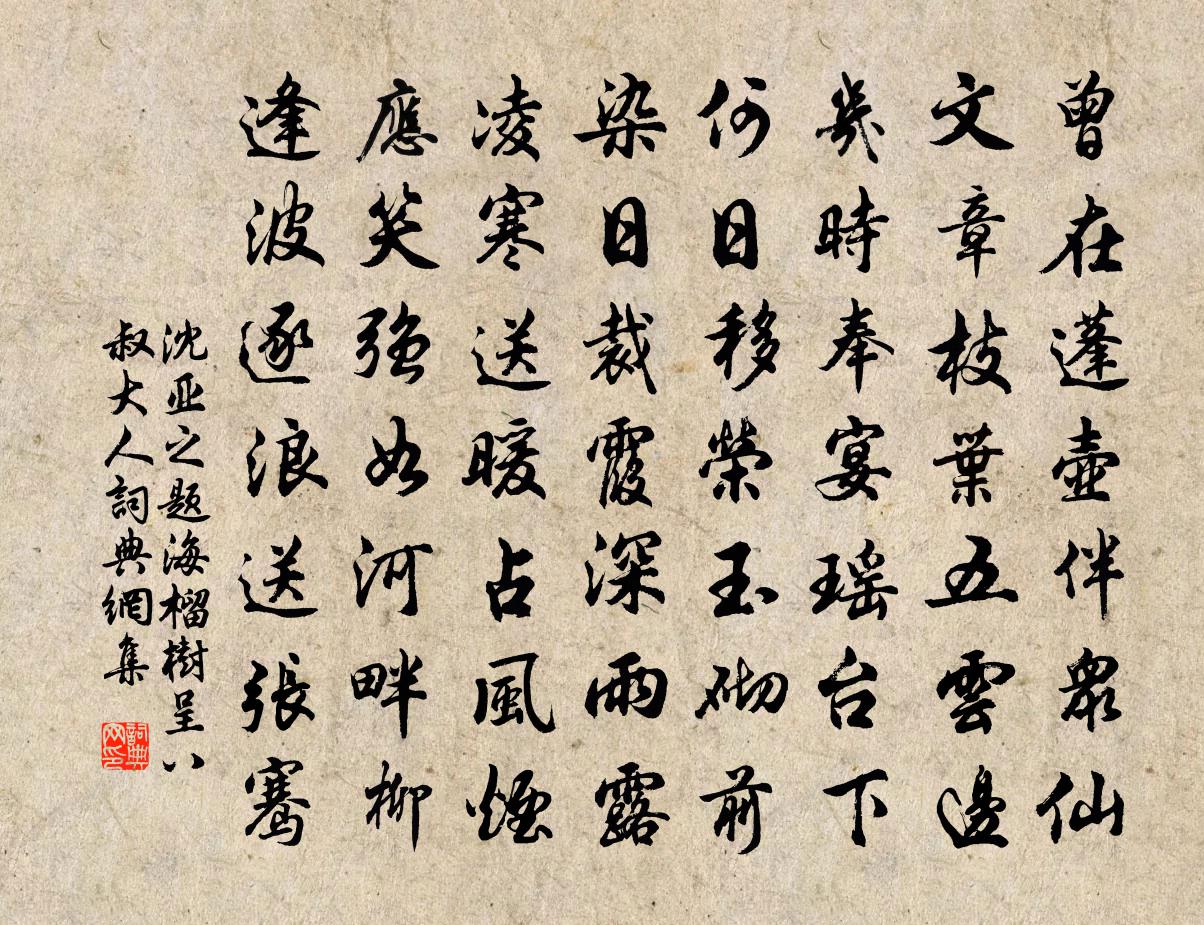 曾在蓬壺伴眾仙
文章枝葉五雲邊
幾時奉宴瑶台下
何日移榮玉砌前
染日裁霞深雨露
凌寒送暖占風煙
應笑强如河畔柳
逢波逐浪送張騫
沈亚之题海榴樹呈八
叔大人詞典網集
詞典
网印